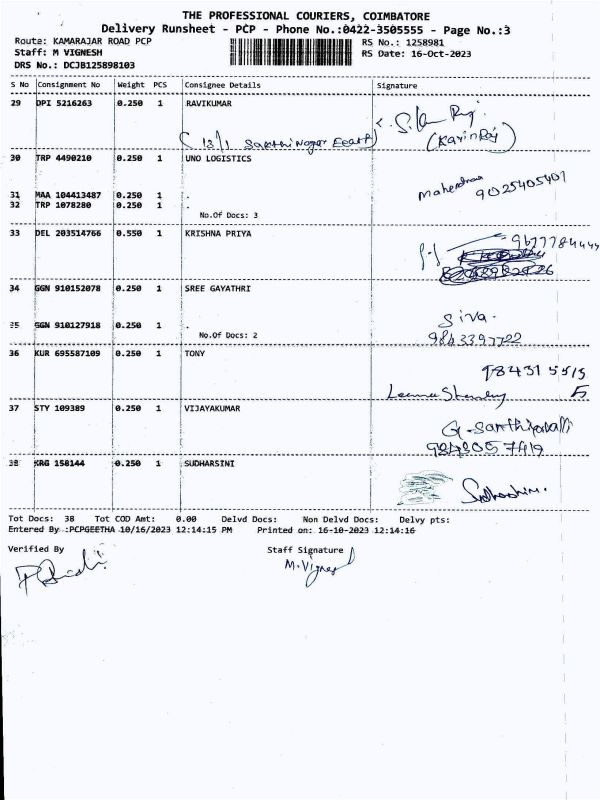 THE PROFESSIONAL COURIERS, COIMBATORE
Delivery Runsheet - PCP - Phone No.:0422-3505555 - Page No.:3
Route: KAMARAJAR ROAD PCP RS No.: 1258981
Staff: M VIGNESH RS Date: 16-Oct-2023
DRS No.: DCJB125898103
S No Consignment No Weight PCS Consignee Details Signature
29 DPI 5216263 0.250 1 RAVIKUMAR
(13/1 Sakthi Nagar (Karinraj)
30 TRP 4490210 0.250 1 UNO LOGISTICS
Mahendran 9025405401
31 MAA 104413487 0.250 1 .
32 TRP 1078280 0.250 1 .
No.Of Docs: 3
33 DEL 203514766 0.550 1 KRISHNA PRIYA
34 GGN 910152078 0.250 1 SREE GAYATHRI
Siva.
35 GGN 910127918 0.250 1 .
No.Of Docs: 2
36 KUR 695587109 0.250 1 TONY
984315515
37 STY 109389 0.250 1 VIJAYAKUMAR
38 KRG 158144 0.250 1 SUDHARSINI
Tot Docs: 38 Tot COD Amt: 0.00 Delvd Docs: Non Delvd Docs: Delvy pts:
Entered By :PCPGEETHA 10/16/2023 12:14:15 PM Printed on: 16-10-2023 12:14:16
Verified By Staff Signature
M.Vignesh